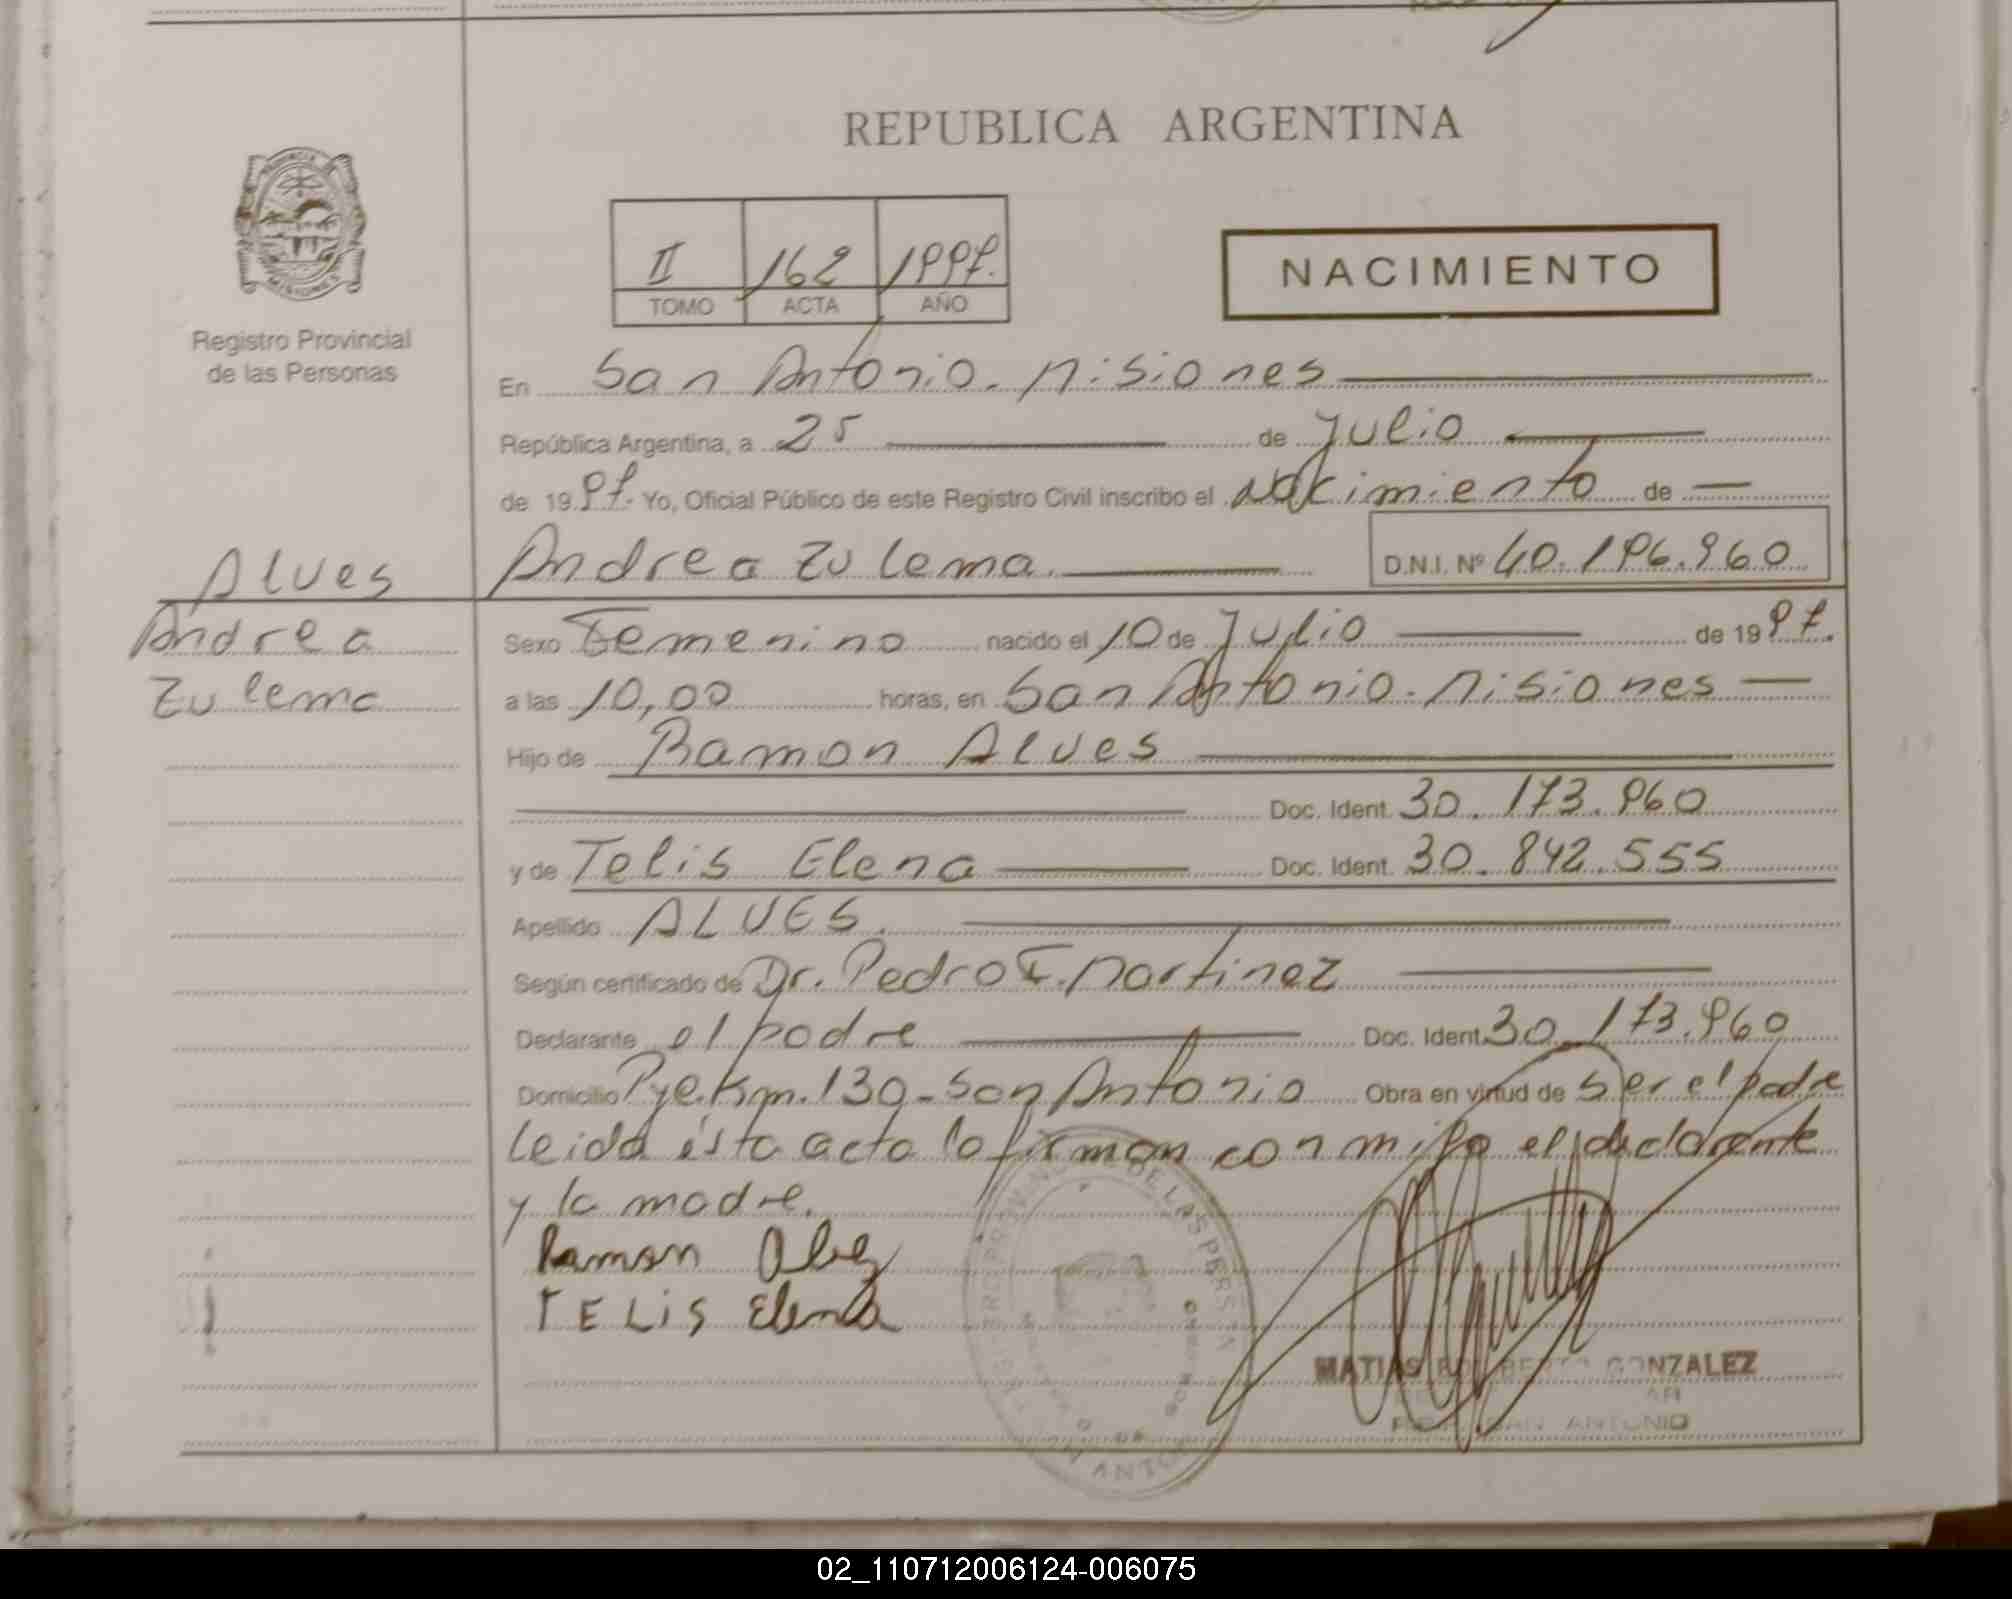 REPUBLICA ARGENTINA
PROVINCIA DE MISIONES
Registro Provincial
de las Personas
II 162 1997.
TOMO ACTA AÑO
NACIMIENTO
En San Antonio. Misiones
República Argentina, a 25 de Julio
de 1997. Yo, Oficial Público de este Registro Civil inscribo el Nacimiento de
Alves Andrea Zulema. D.N.I. Nº 40.196.960
Andrea
Zulema
Sexo Femenino nacido el 10 de Julio de 1997.
a las 10,00 horas, en San Antonio. Misiones
Hijo de Ramon Alves
Doc. Ident. 30.173.960
y de Telis Elena Doc. Ident. 30.842.555
Apellido ALVES.
Según certificado de Dr. Pedro F. Martinez
Declarante el padre Doc. Ident. 30.173.960
Domicilio Pje. Km. 130 - San Antonio Obra en virtud de ser el padre
Leida ésta acta la firman con migo el declarante
y la madre.
Ramon Alvez
TELiS Elena
MATIAS ROBERTO GONZALEZ
SAN ANTONIO
02_110712006124-006075